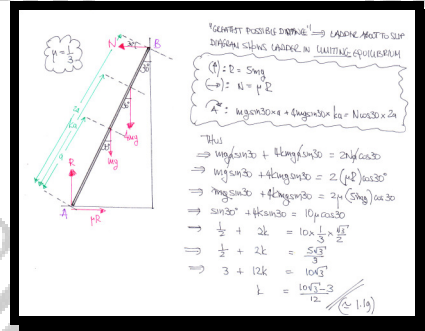 "GREATEST POSSIBLE DISTANCE" ⟹ LADDER ABOUT TO SLIP
DIAGRAM SHOWS LADDER IN LIMITING EQUILIBRIUM
μ = 1/3
N
B
30°
30°
30°
2a
ka
a
4mg
mg
R
A
μR
(↑): R = 5mg
(→): N = μR
A: mgsin30×a + 4mgsin30×ka = Ncos30×2a
THUS
⟹ mgasin30 + 4kmgasin30 = 2Nacos30
⟹ mgsin30 + 4kmgsin30 = 2(μR)cos30°
⟹ mgsin30 + 4kmgsin30 = 2μ(5mg)cos30
⟹ sin30° + 4ksin30 = 10μcos30
⟹ 1/2 + 2k = 10 × 1/3 × √3/2
⟹ 1/2 + 2k = 5√3/3
⟹ 3 + 12k = 10√3
k = (10√3-3)/12 (≃ 1.19)